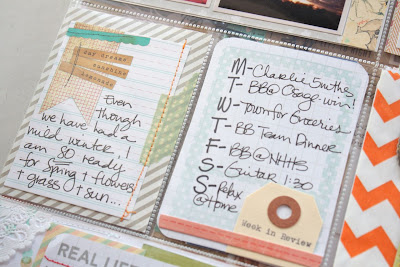 Even
though
we have had a
mild winter, I
am so ready
for Spring + flowers
+ grass + sun...
M-Charlie Smiths
T-BB@Osage-win!
W-Town for Groceries
T-BB Team Dinner
F-BB@NHHS
S-Guitar 1:30
S-Relax
@Home
Week in Review
REAL LIFE